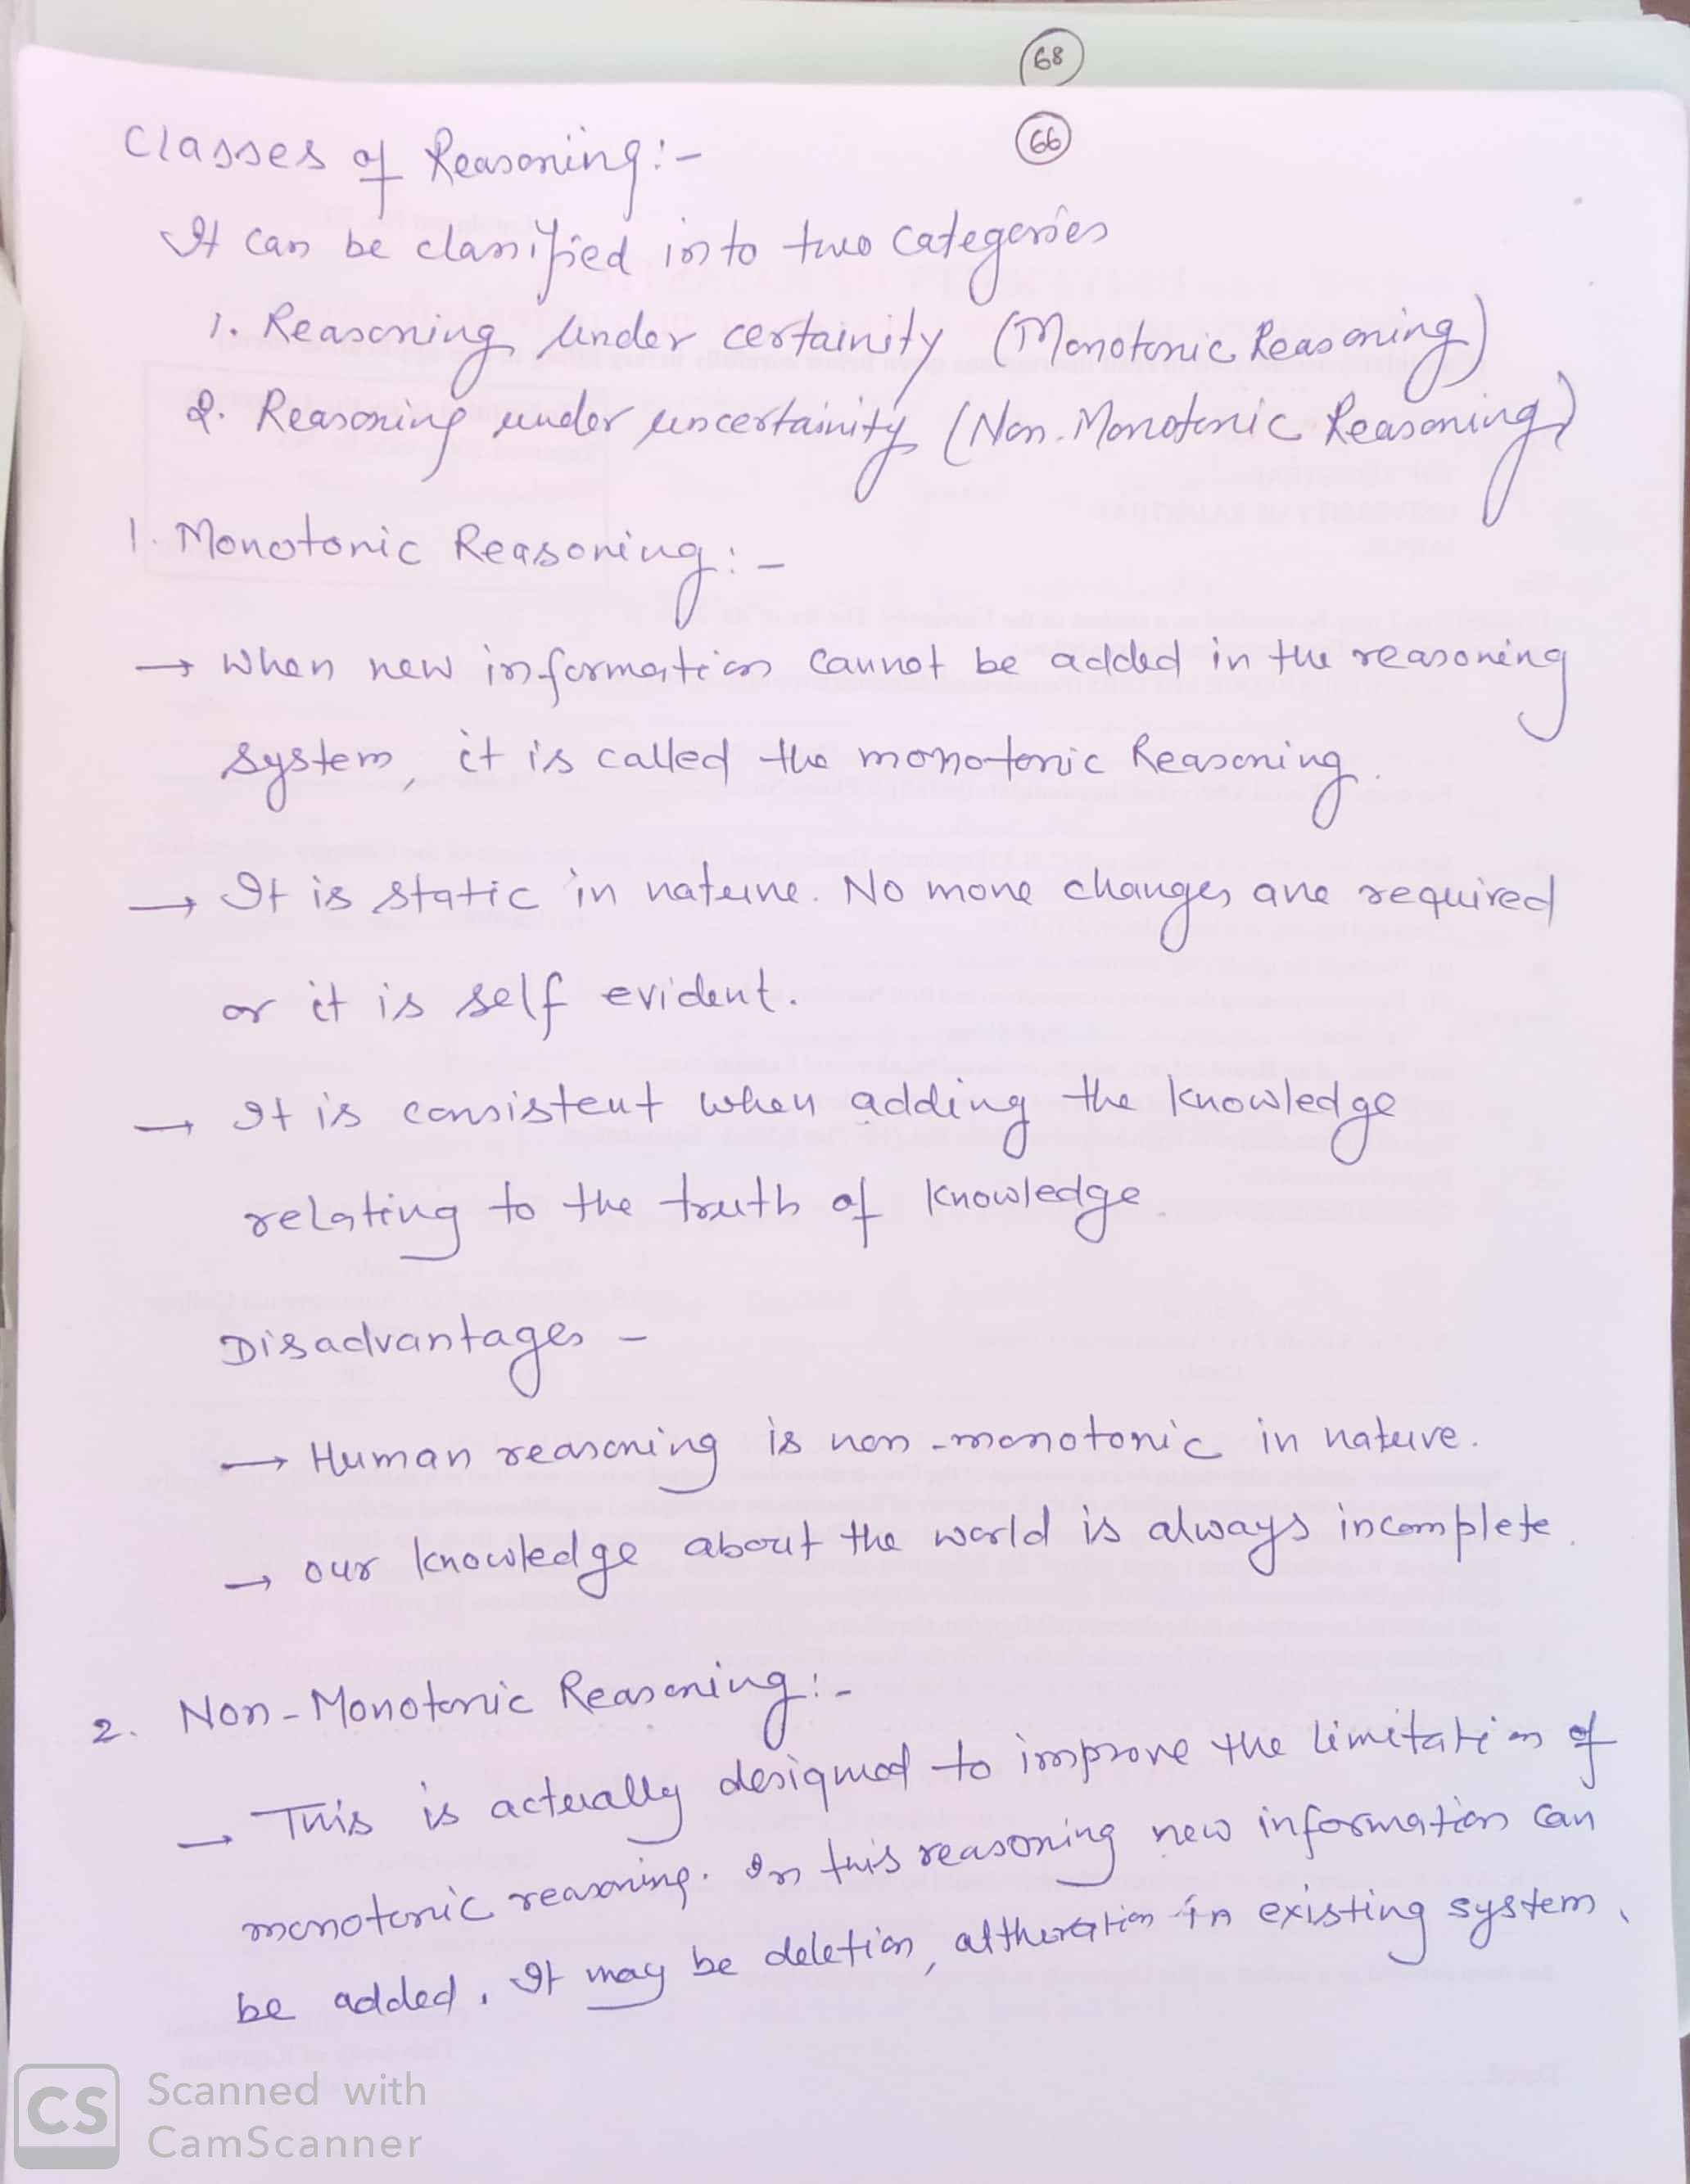 68
66
Classes of Reasoning:-
It can be classified into two categories
1. Reasoning under certainity (Monotonic Reasoning)
2. Reasoning under uncertainity (Non-Monotonic Reasoning)
1. Monotonic Reasoning:-
→ When new information cannot be added in the reasoning
system, it is called the monotonic Reasoning.
→ It is static in nature. No more changes are required
or it is self evident.
→ It is consistent when adding the knowledge
relating to the truth of knowledge.
Disadvantages -
→ Human reasoning is non-monotonic in nature.
→ our knowledge about the world is always incomplete.
2. Non-Monotonic Reasoning:-
→ This is actually designed to improve the limitation of
monotonic reasoning. In this reasoning new information can
be added. It may be deletion, altheration in existing system.
CS Scanned with
CamScanner